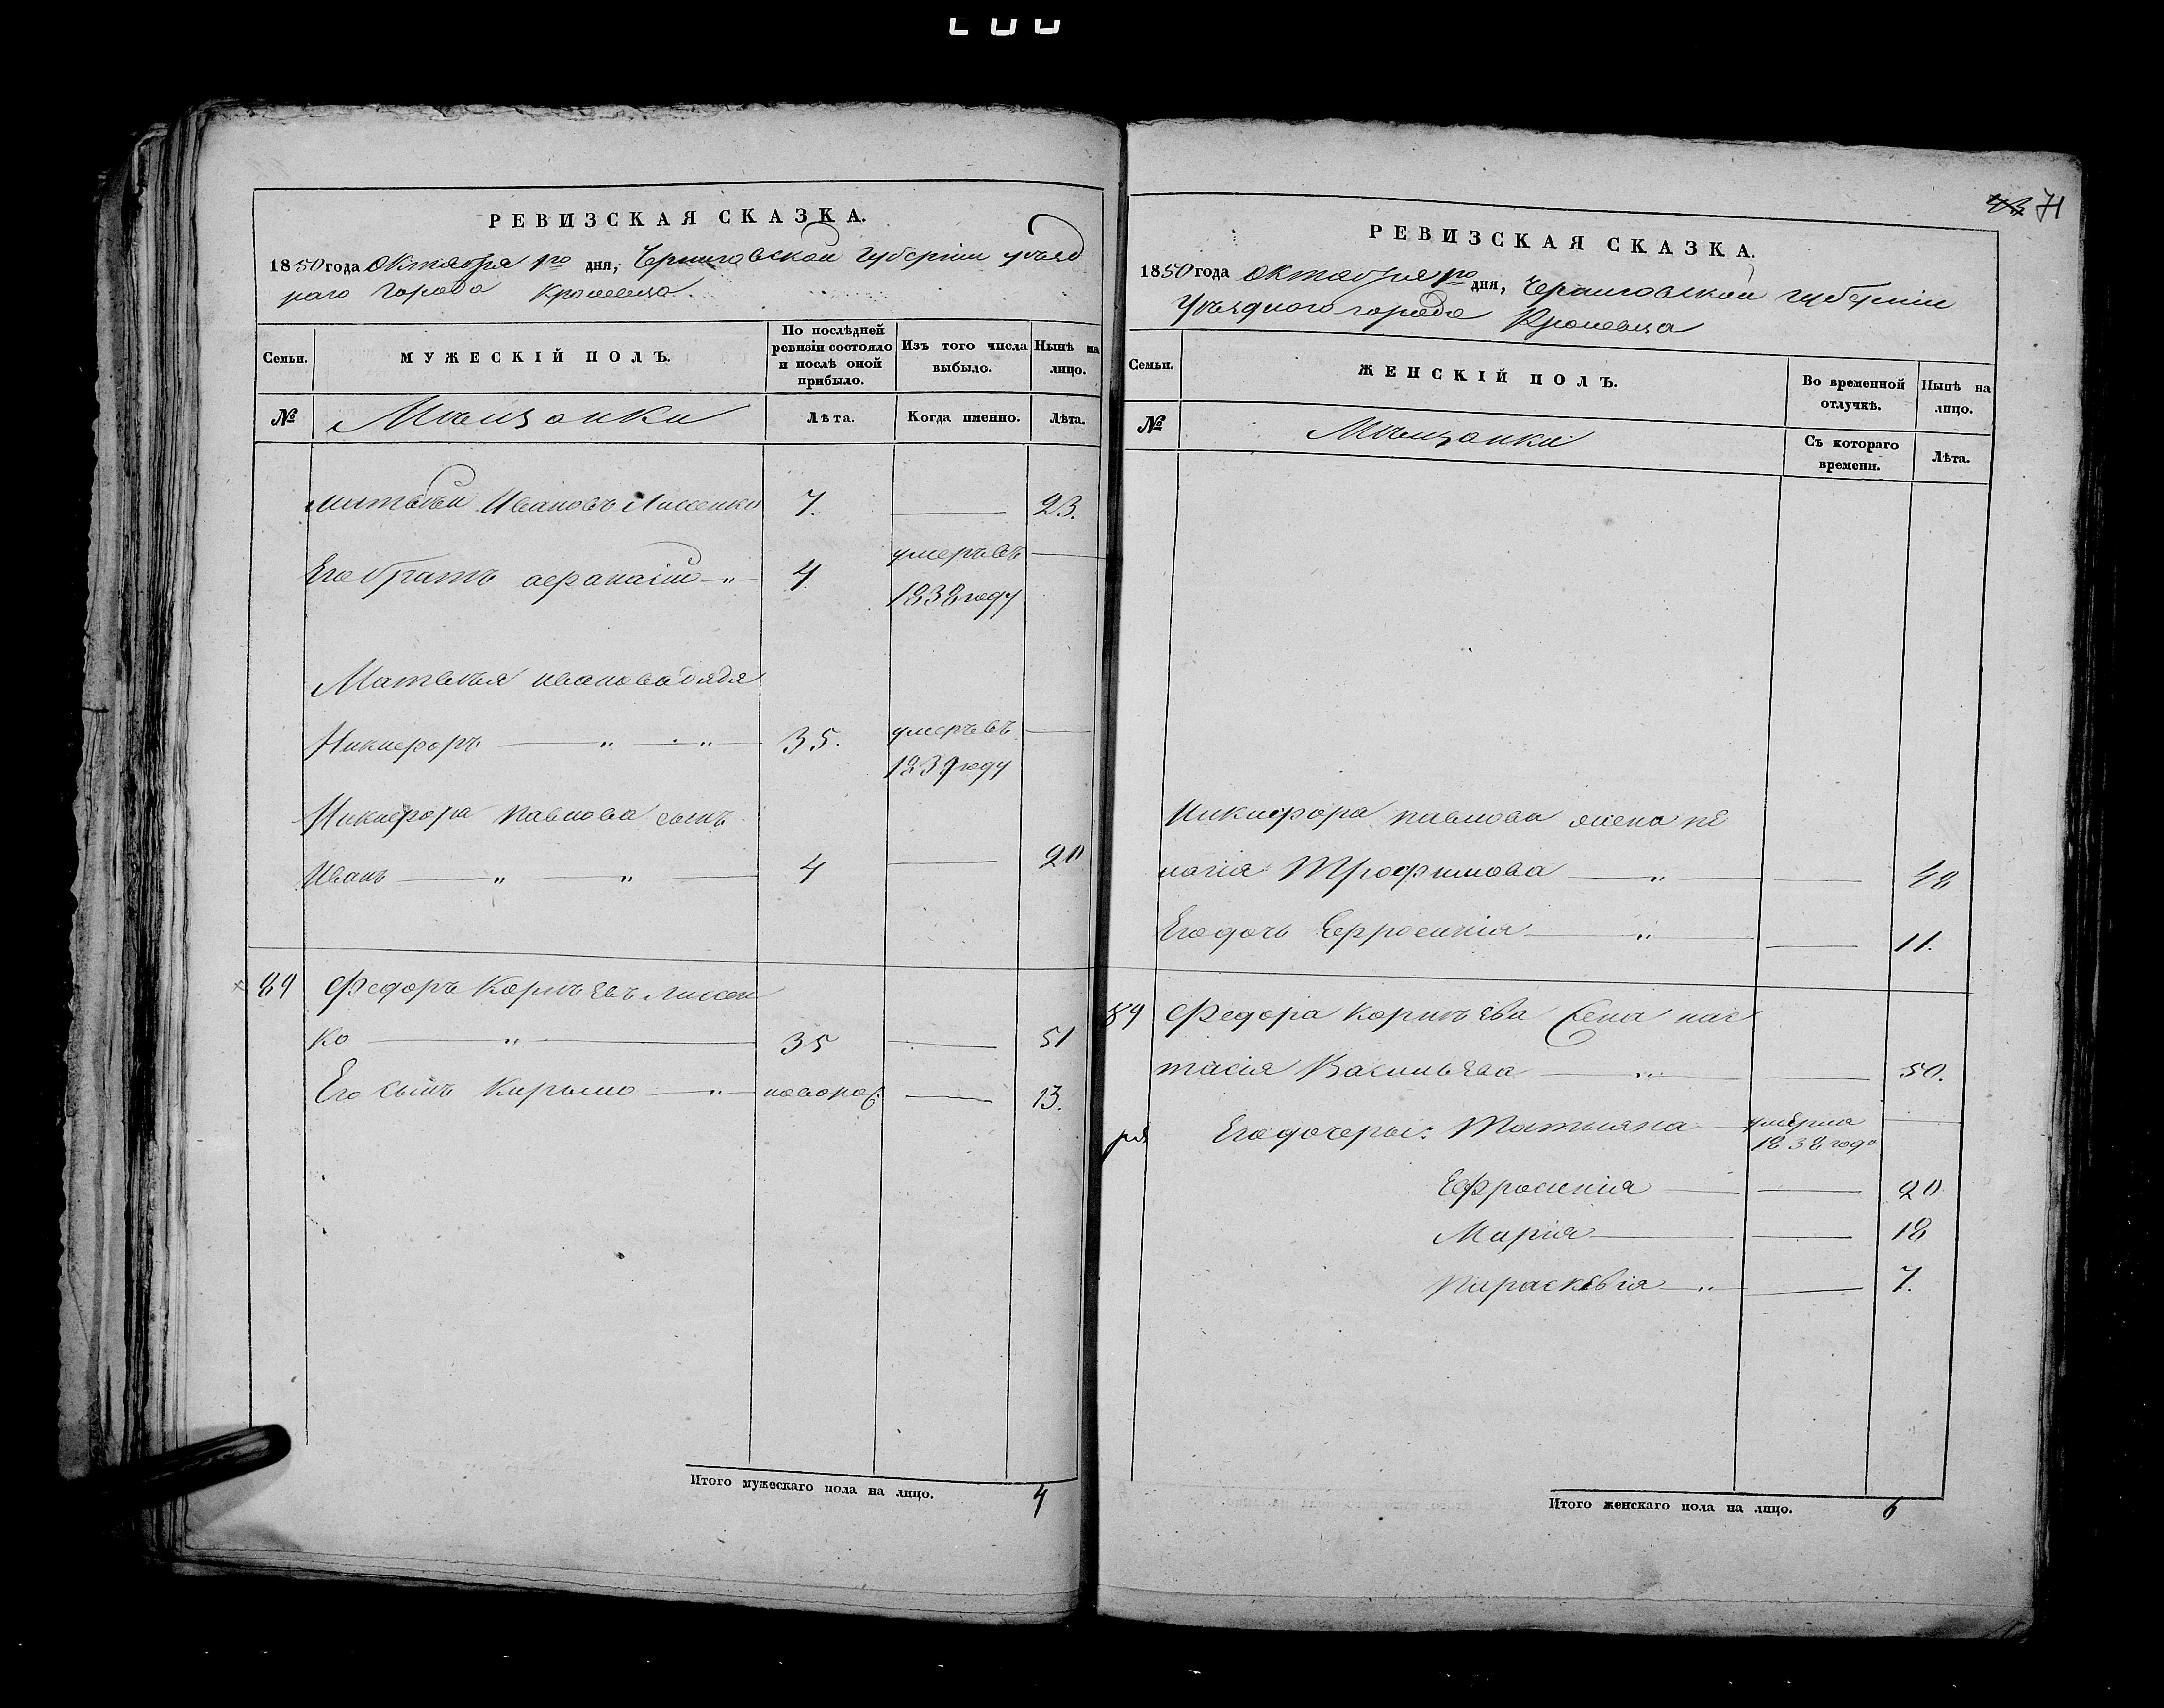 71
РЕВИЗСКАЯ СКАЗКА.
1850 года Октября 1го дня, Черниговской губерніи уѣзд
наго города Кролевца
Семьи. МУЖЕСКІЙ ПОЛЪ. По послѣдней ревизіи состояло и послѣ оной прибыло. Изъ того числа выбыло. Нынѣ на лицо.
№ Мѣщанки Лѣта. Когда именно. Лѣта.
Матвѣй Ивановъ Лисенко 7. 23.
Его братъ Афанасій 4. умеръ въ 1838 году
Матвѣя Иванова дядя
Никифоръ 35. умеръ въ 1839 году
Никифора Павлова сынъ
Иванъ 4 20
89 Федоръ Корнѣевъ Лисен
ко 35 51
Его сынъ Кирыло новорож: 13.
Итого мужескаго пола на лицо. 4
РЕВИЗСКАЯ СКАЗКА.
1850 года Октября 1го дня, Черниговской губерніи
Уѣзднаго города Кролевца
Семьи. ЖЕНСКІЙ ПОЛЪ. Во временной отлучкѣ. Нынѣ на лицо.
№ Мѣщанки Съ котораго времени. Лѣта.
Никифора Павлова жена Пе
лагія Трофимова 48
Его дочь Ефросинія 11.
89 Федора Корнѣева жена Нас
тасія Васильева 50.
Его дочери: Татьяна умерла 1838 года
Ефросинія 20
Марія 18
Параскевія 7.
Итого женскаго пола на лицо. 6